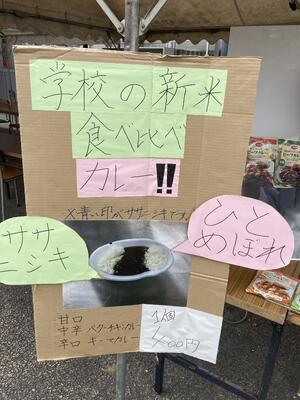 学校の新米
食べ比べ
カレー!!
※青い印がササニシキです。
ササ
ニシキ
ひと
めぼれ
甘口
中辛 バターチキンカレー
辛口 キーマカレー
1個
400円